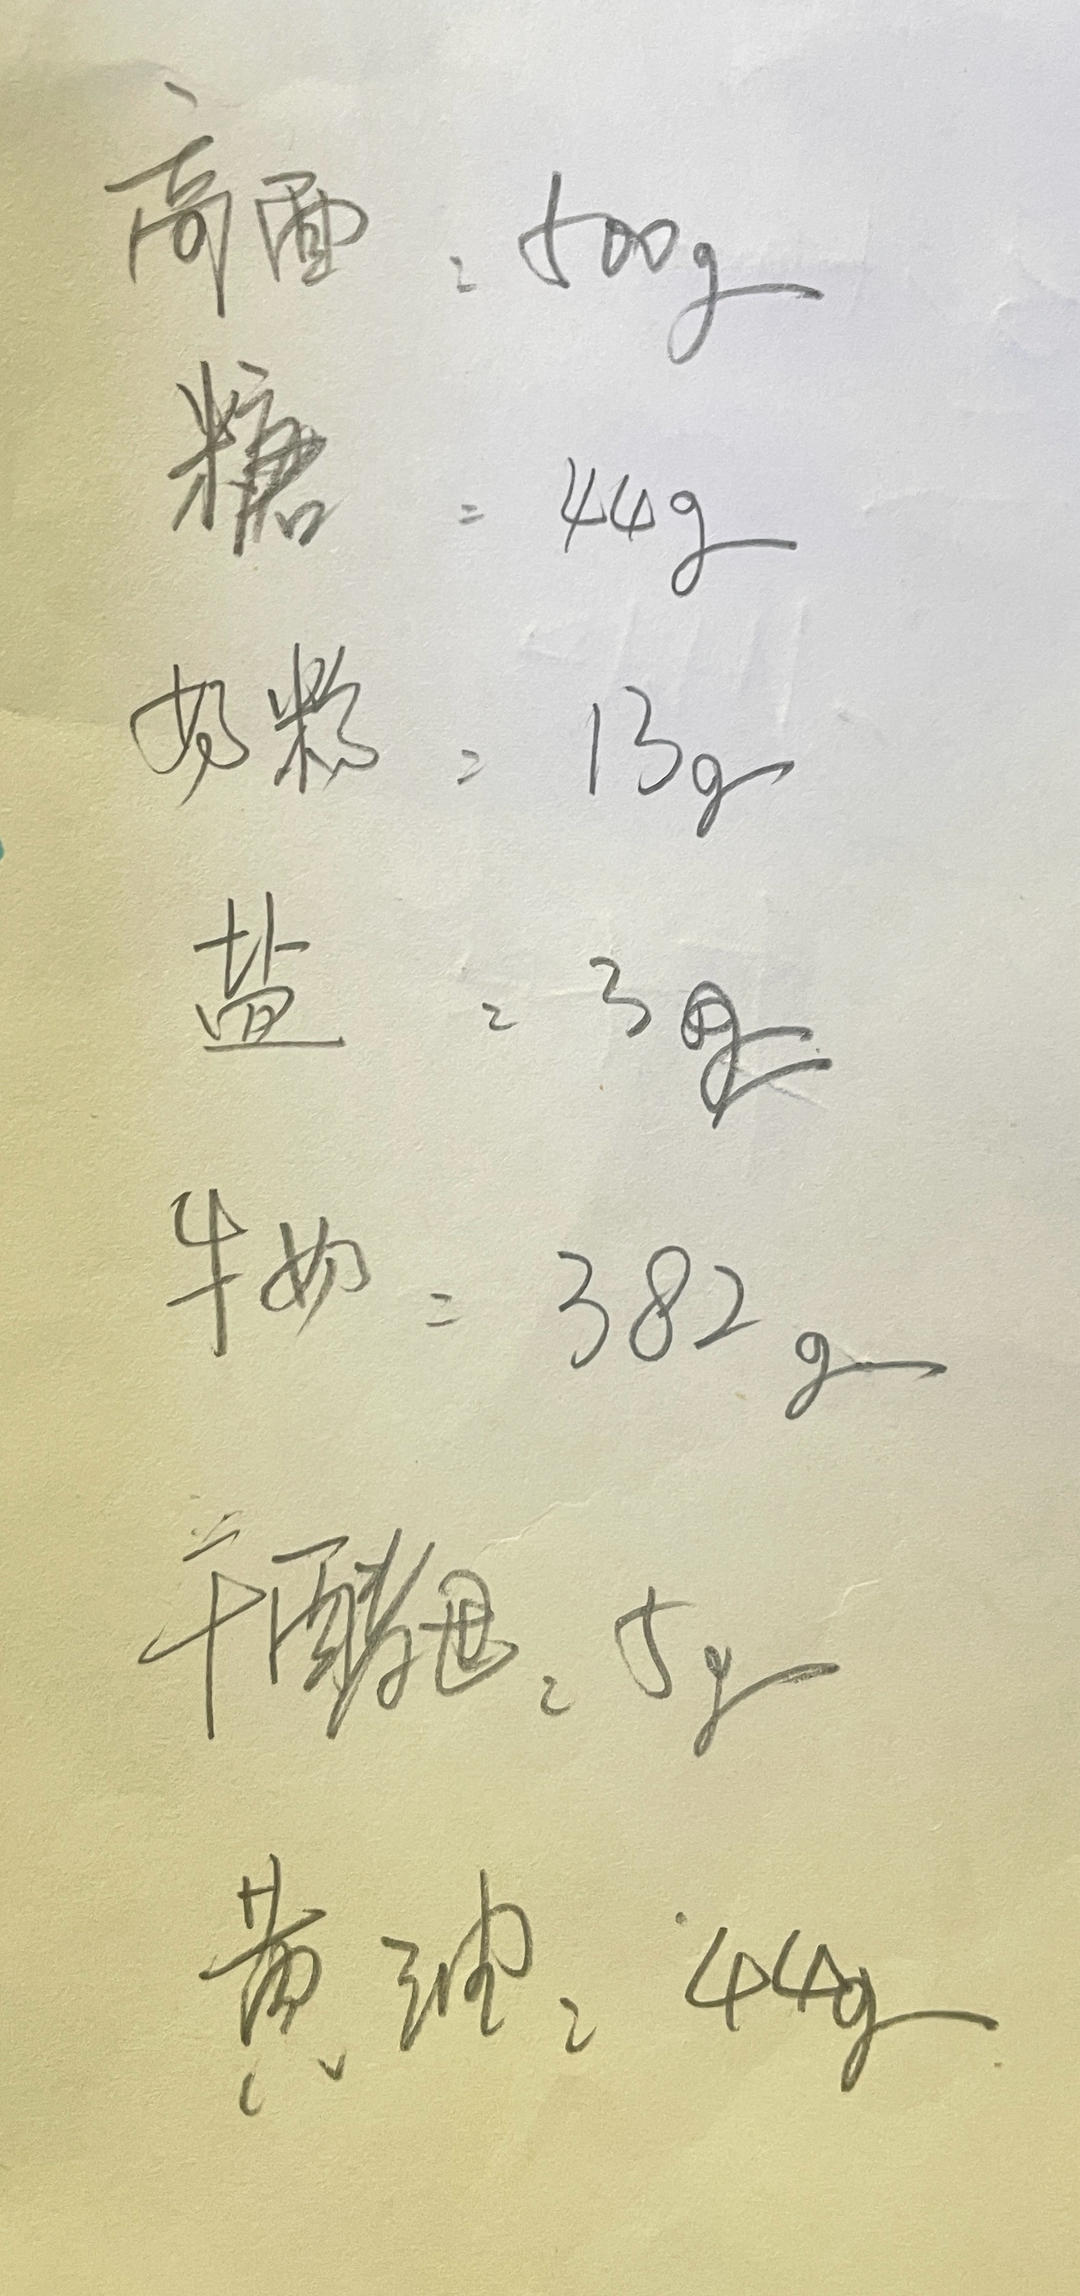 高面=500g
糖=44g
奶粉=13g
盐=3g
牛奶=382g
干酵母=5g
黄油=44g